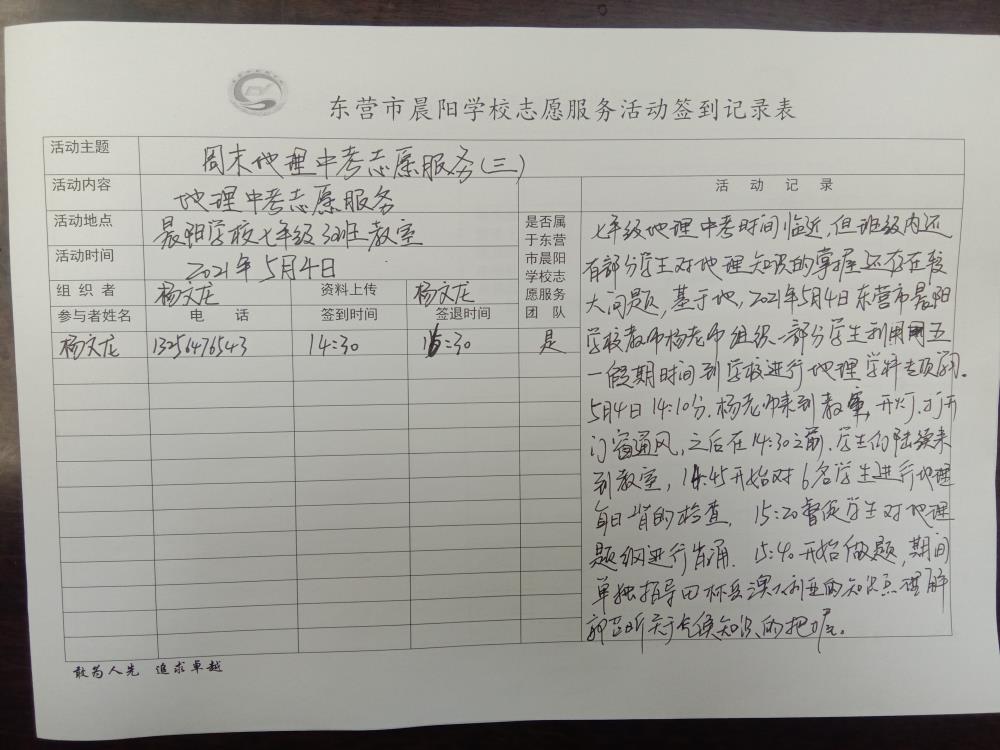 东营市晨阳学校志愿服务活动签到记录表
活动主题 周末地理中考志愿服务(三)
活动内容 地理中考志愿服务
活动地点 晨阳学校七年级3班教室
活动时间 2021年5月4日
组织者 杨文龙 资料上传 杨文龙
参与者姓名 电话 签到时间 签退时间
是否属
于东营
市晨阳
学校志
愿服务
团队
杨文龙 13256476543 14:30 16:30 是
活动记录
七年级地理中考时间临近,但班级内还
有部分学生对地理知识的掌握还存在较
大问题,基于地,2021年5月4日东营市晨阳
学校教师杨老师组织一部分学生利用五
一假期时间到学校进行地理学科专项学习.
5月4日14:10分.杨老师来到教室,开灯.打开
门窗通风,之后在14:30之前.学生们陆续来
到教室,14:45开始对6名学生进行地理
每日背的检查. 15:20督促学生对地理
题纲进行背诵. 15:40开始做题,期间
单独指导田 澳大利亚的知识点理解
郭 昕关于气候知识的把握.
敢为人先 追求卓越